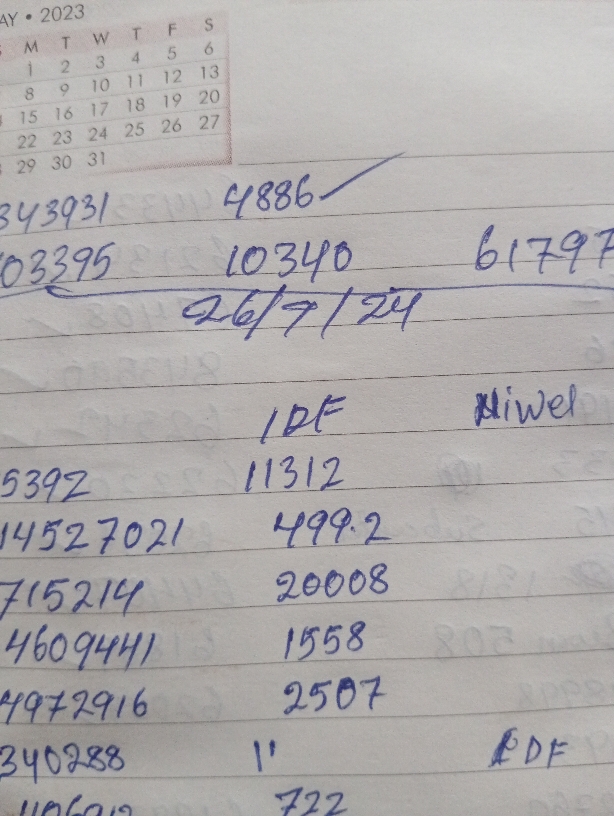 AY • 2023
S M T W T F S
1 2 3 4 5 6
8 9 10 11 12 13
15 16 17 18 19 20
22 23 24 25 26 27
29 30 31
343931 4886
03395 10340 61797
26/7/24
IDF Niwel
5392 11312
14527021 499.2
715214 20008
4609441 1558
4972916 2507
340288 " PDF
722